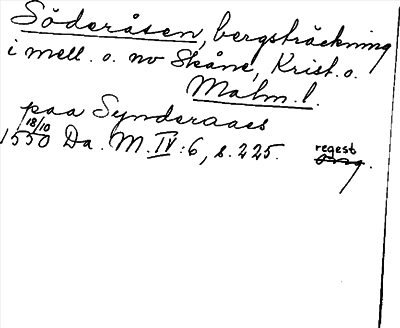 Söderåsen, bergsträckning
i mell. o. nv Skåne, Krist. o.
Malm. l.
paa Synderaaes
18/10
1550 Da. M. IV:6, s. 225. regest
orig.